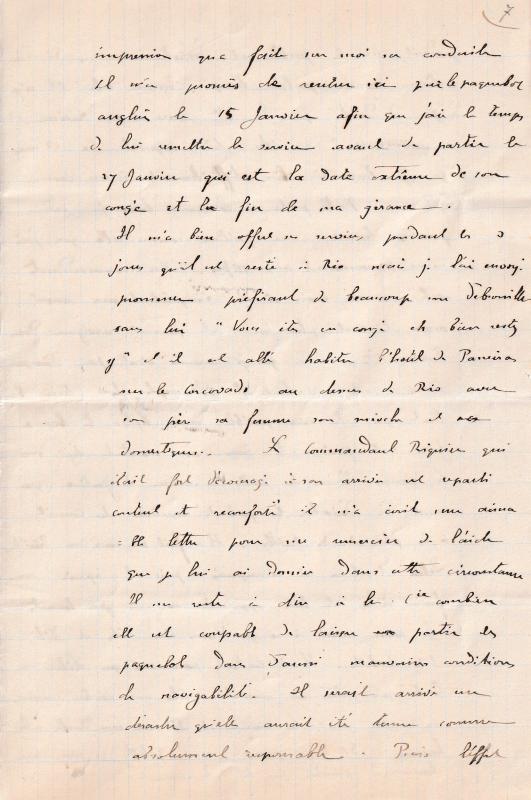 7
impression que fait sur moi sa conduite
Il m'a promis de rentrer ici par le paquebot
anglais le 15 Janvier afin que j'aie le temps
de lui remettre le service avant de partir le
27 Janvier qui est la date extrême de son
congé et la fin de ma gérance.
Il m'a bien offert ses services pendant les 3
jours qu'il est resté à Rio mais je l'ai envoyé
promener préférant de beaucoup me débrouiller
sans lui "Vous êtes en congé eh bien restez
y" et il est allé habiter l'hôtel de Paneiras
sur le Corcovado au dessus de Rio avec
son père sa femme son mioche et ses
domestiques. Le Commandant Riquier qui
était fort découragé à son arrivée est reparti
content et reconforté il m'a écrit une aima
=ble lettre pour me remercier de l'aide
que je lui ai donnée dans cette circonstance
Il me reste à dire à la Cie combien
elle est coupable de laisser partir les
paquebot dans d'aussi mauvaises conditions
de navigabilité. Il serait arrivé un
désastre qu'elle aurait été tenue comme
absolument responsable. Puis l'effet